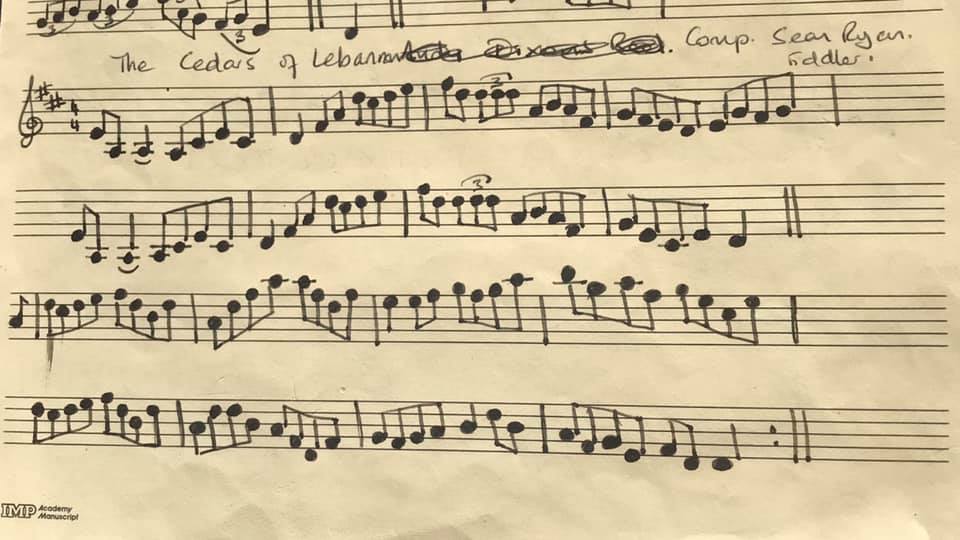 3 3 3
The Cedars of Lebanon Comp. Sean Ryan.
Fiddler.
4
4
3
3
IMP Academy
Manuscript